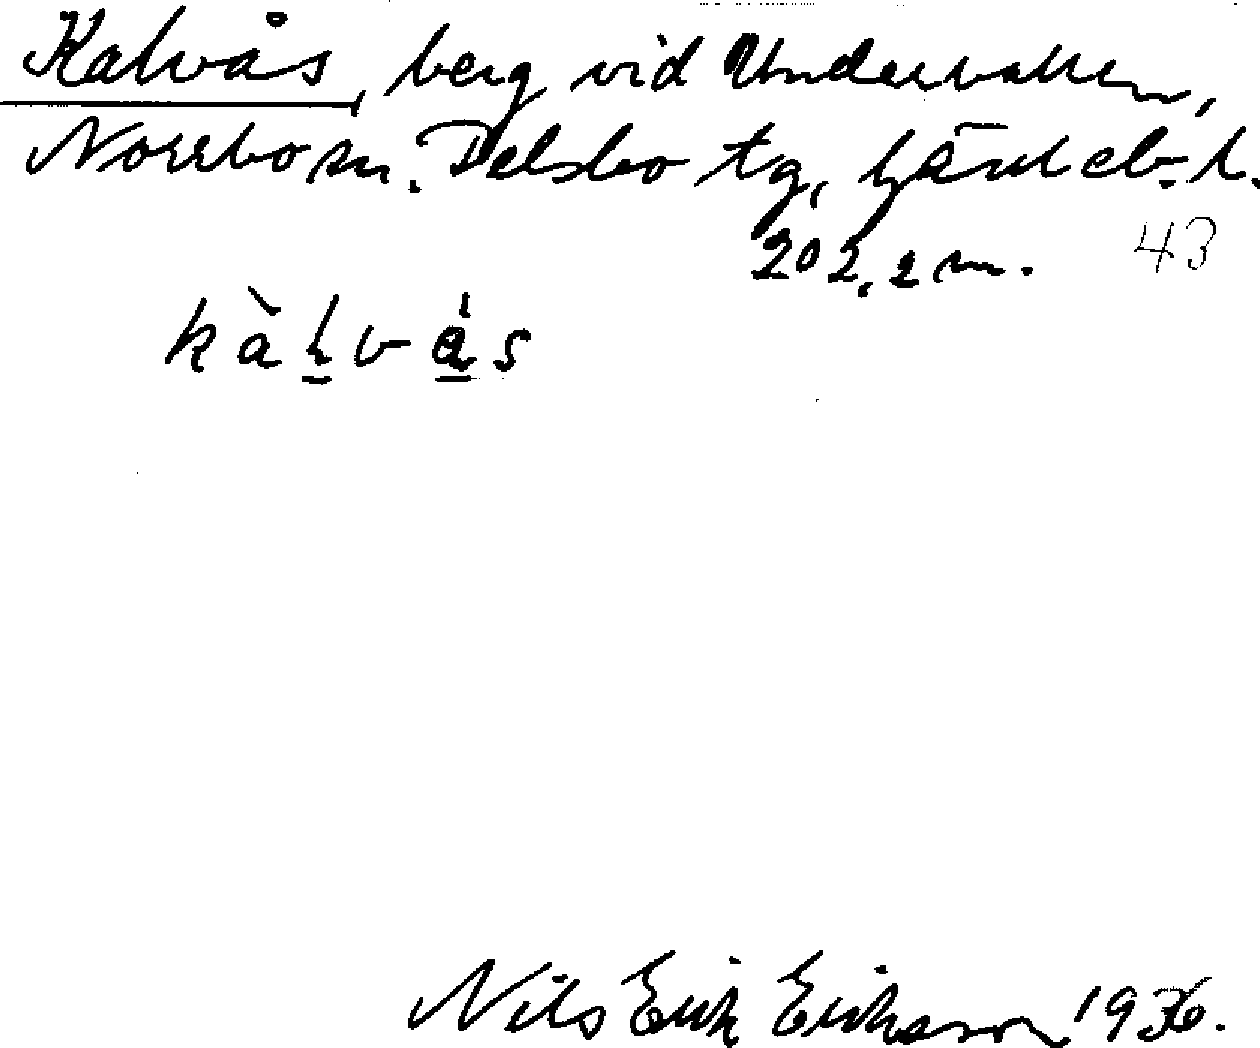 Kalvås, berg vid Undervallen,
Norrbo sn. Delsbo tg, Gävleb. l.
202,2 m. 43
kàlvås
Nils Erik Eriksson 1936.